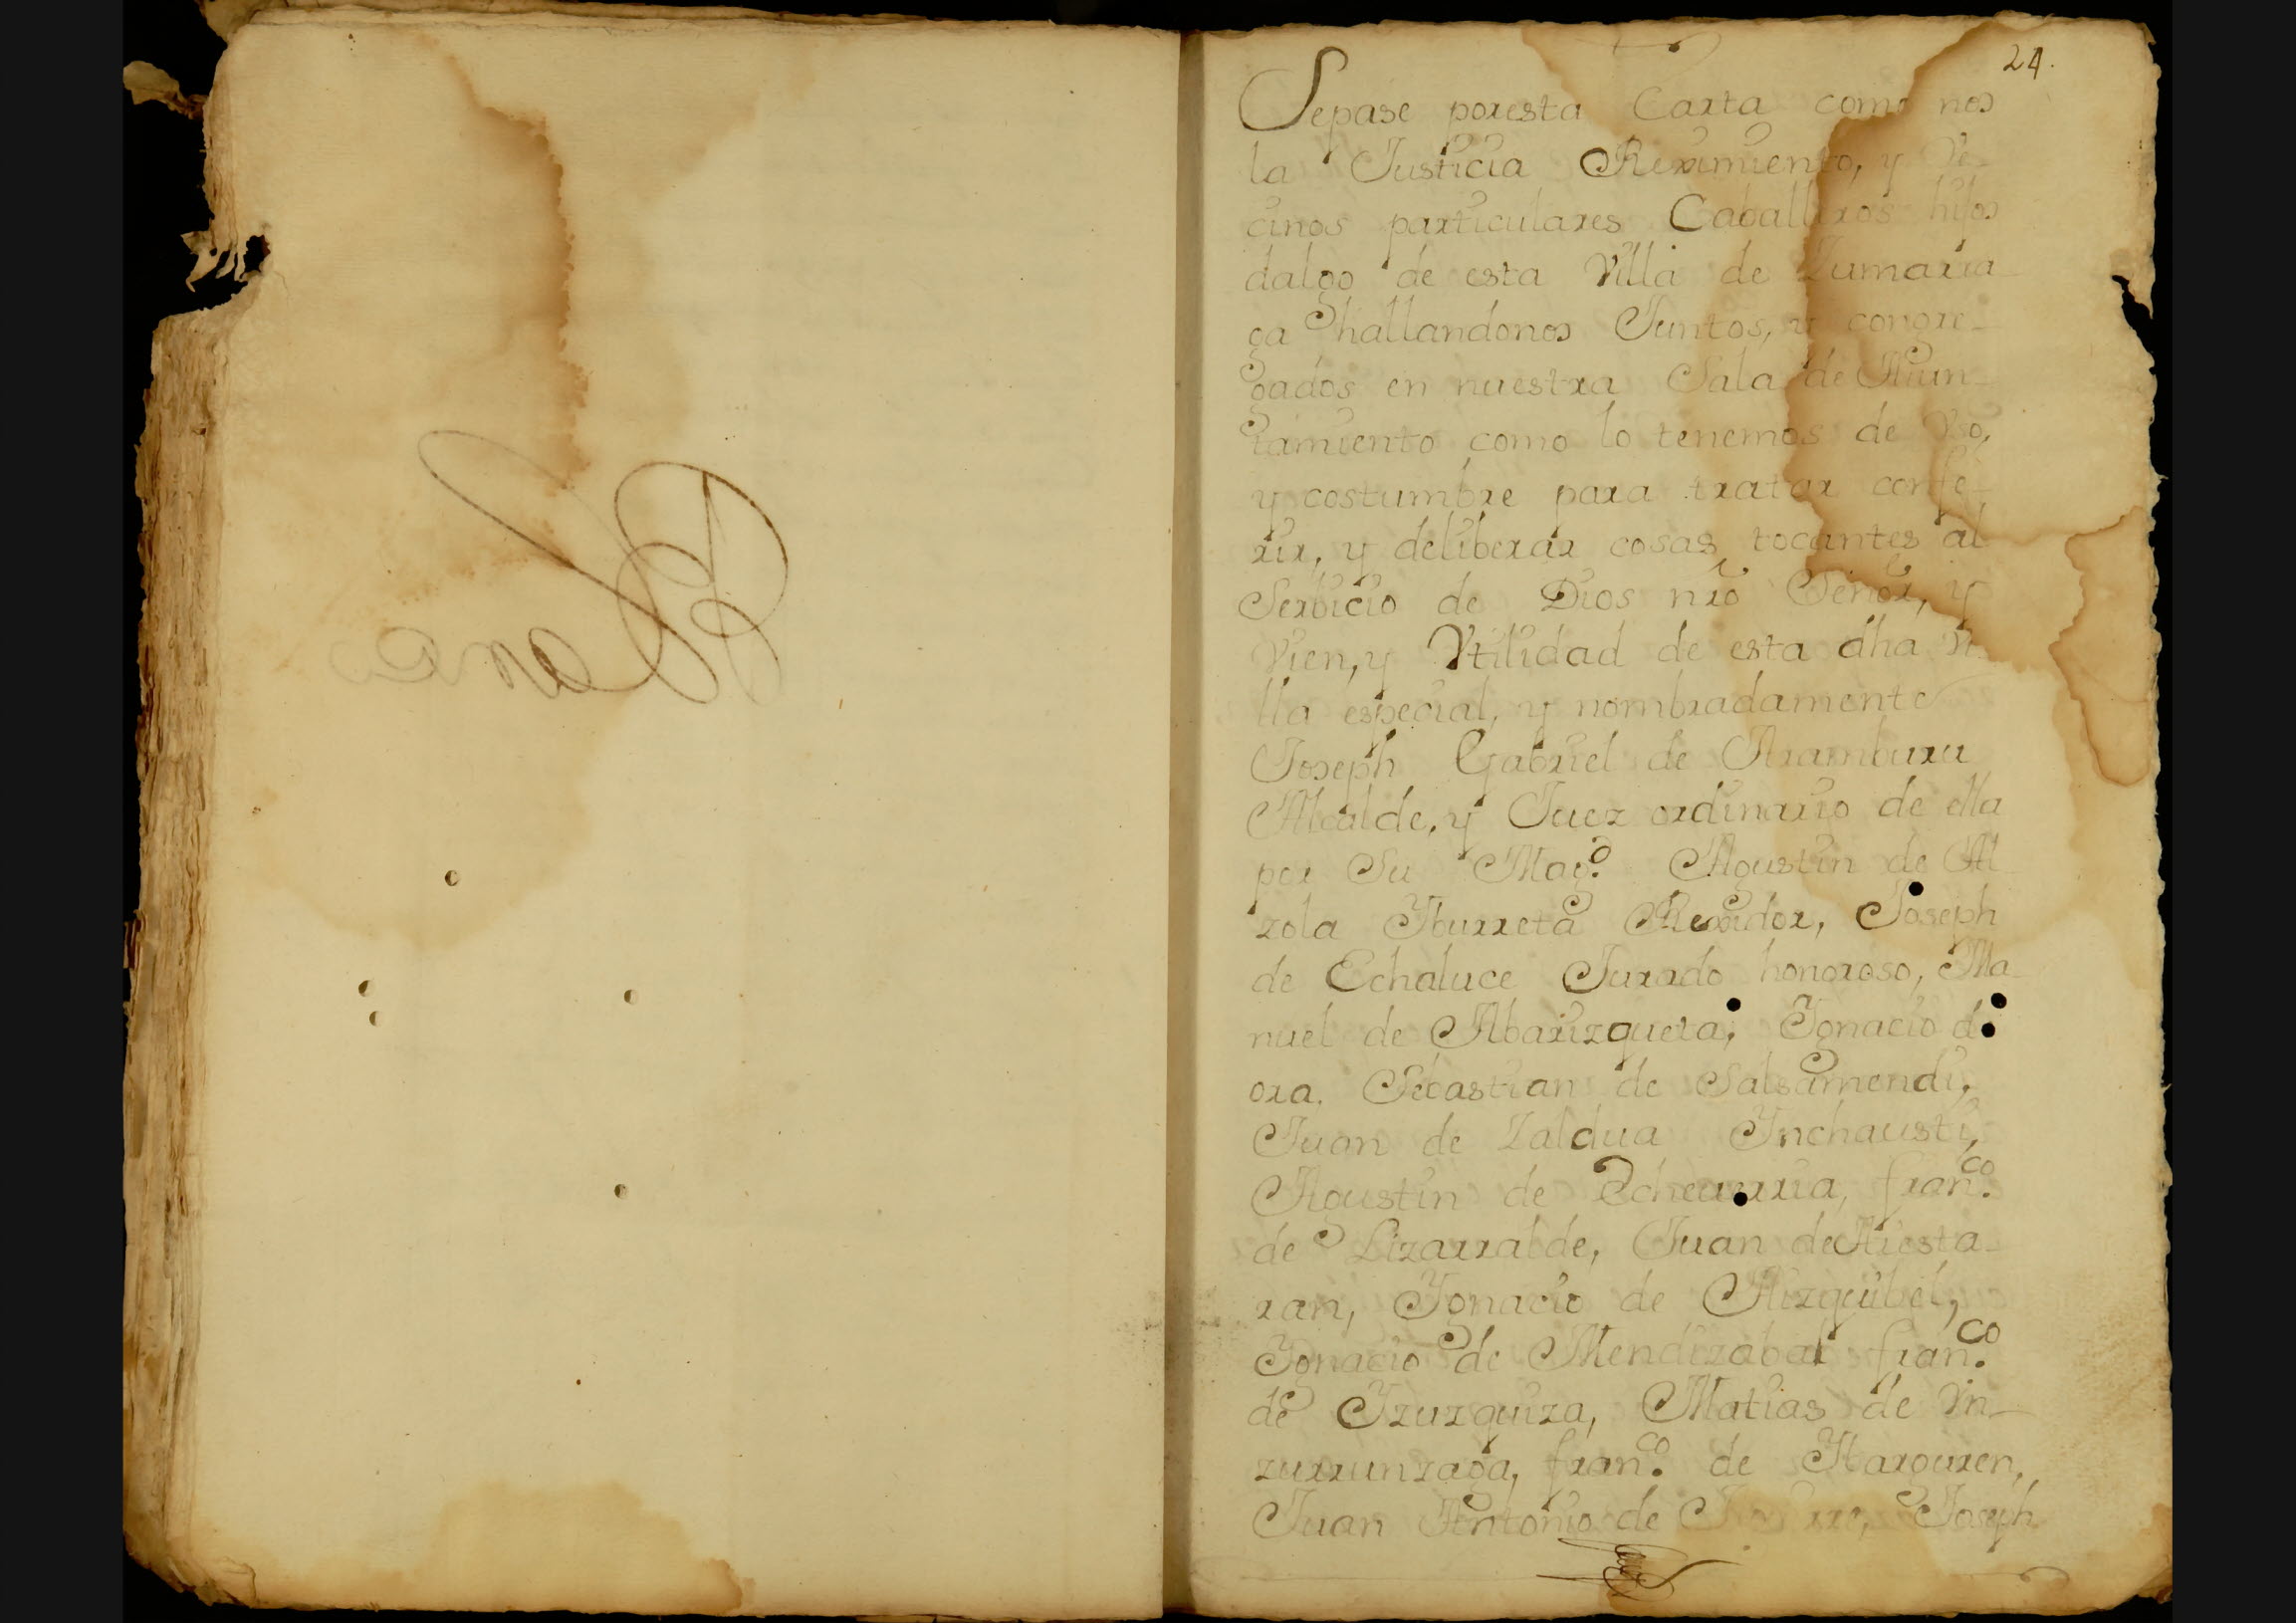 24.
Sepase poresta Carta como nos
la Justicia Reximiento, y Ve-
cinos particulares Caballeros hijos
dalgo de esta Villa de Zumarra
ga hallandonos Juntos, y congre-
gados en nuestra Sala de Aiun-
tamiento como lo tenemos de Vso,
y costumbre para tratar confe-
rir, y deliberar cosas tocantes al
Serbicio de Dios nrō Señor, y
Vien, y Vtilidad de esta dha Vi-
lla especial, y nombradamente
Joseph Gabriel de Aramburu
Alcalde, y Juez ordinario de ella
por Su Mag.d Agustin de Al
zola Yburreta Rexidor, Joseph
de Echaluce Jurado honoroso, Ma-
nuel de Abarizqueta, Ygnacio de
ora. Sebastian de Salsamendi,
Juan de Zaldua Ynchausti,
Agustin de Echeverria, fran.co
de Lizarralde, Juan de Aiesta-
ran, Ygnacio de Aizquibel,
Ygnacio de Mendizabal fran.co
de Yzuzquiza, Matias de Vn-
zurrunzaga, fran.co de Ybarguren,
Juan Antonio de Joseph